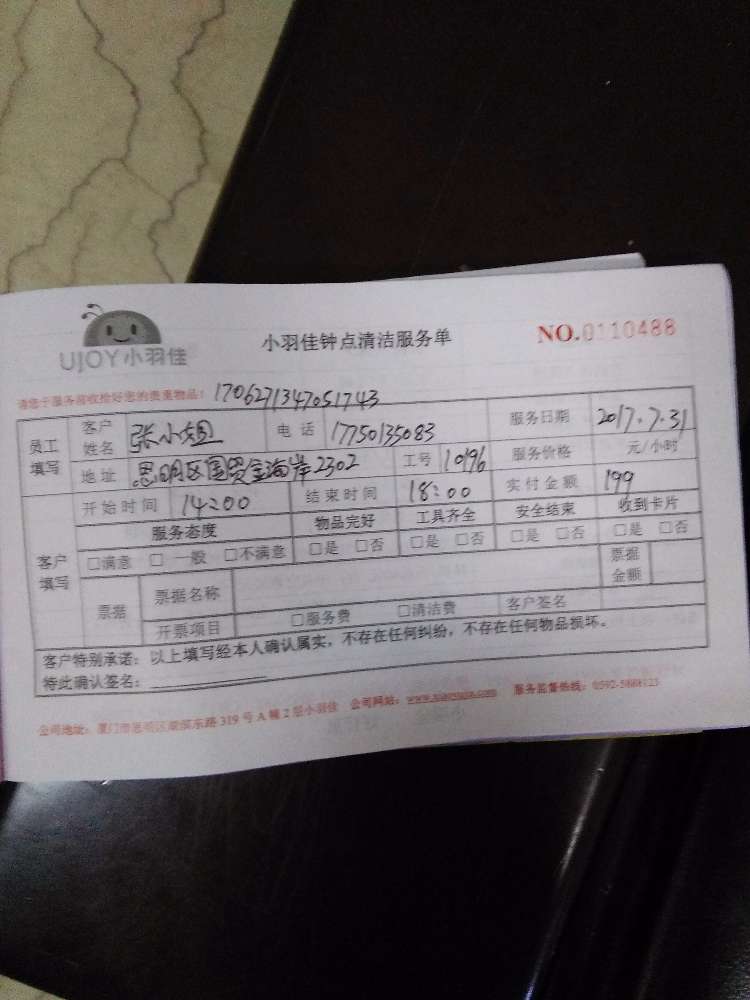 UJOY小羽佳
小羽佳钟点清洁服务单
NO.0110488
请您于服务前收拾好您的贵重物品! 1706271347051743
员工填写 客户姓名 张小姐 电话 17750135083 服务日期 2017.7.31
地址 思明区国贸金海岸2302 工号 10196 服务价格 元/小时
开始时间 14:00 结束时间 18:00 实付金额 199
客户填写 服务态度 物品完好 工具齐全 安全结束 收到卡片
□满意 □一般 □不满意 □是 □否 □是 □否 □是 □否 □是 □否
票据 票据名称 票据金额
开票项目 □服务费 □清洁费 客户签名
客户特别承诺:以上填写经本人确认属实,不存在任何纠纷,不存在任何物品损坏。
特此确认签名:
公司地址:厦门市思明区 东路319号A幢2层小羽佳 公司网站: 服务监督热线: